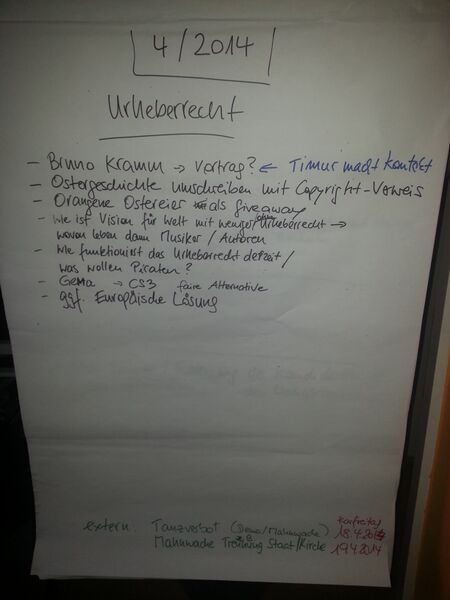 4/2014
Urheberrecht
- Bruno Kramm → Vortrag? ← Timur macht Kontakt
- Ostergeschichte umschreiben mit Copyright-Verweis
- Orangene Ostereier als giveaway
- Wie ist Vision für Welt mit weniger/ohne Urheberrecht →
wovon leben dann Musiker / Autoren
- Wie funktioniert das Urheberrecht derzeit /
was wollen Piraten?
- Gema → CS3 faire Alternative
- ggf. Europäische Lösung
extern: Tanzverbot (Demo/Mahnwache) Karfreitag 18.4.2014
Mahnwache Trennung Staat/Kirche 19.4.2014